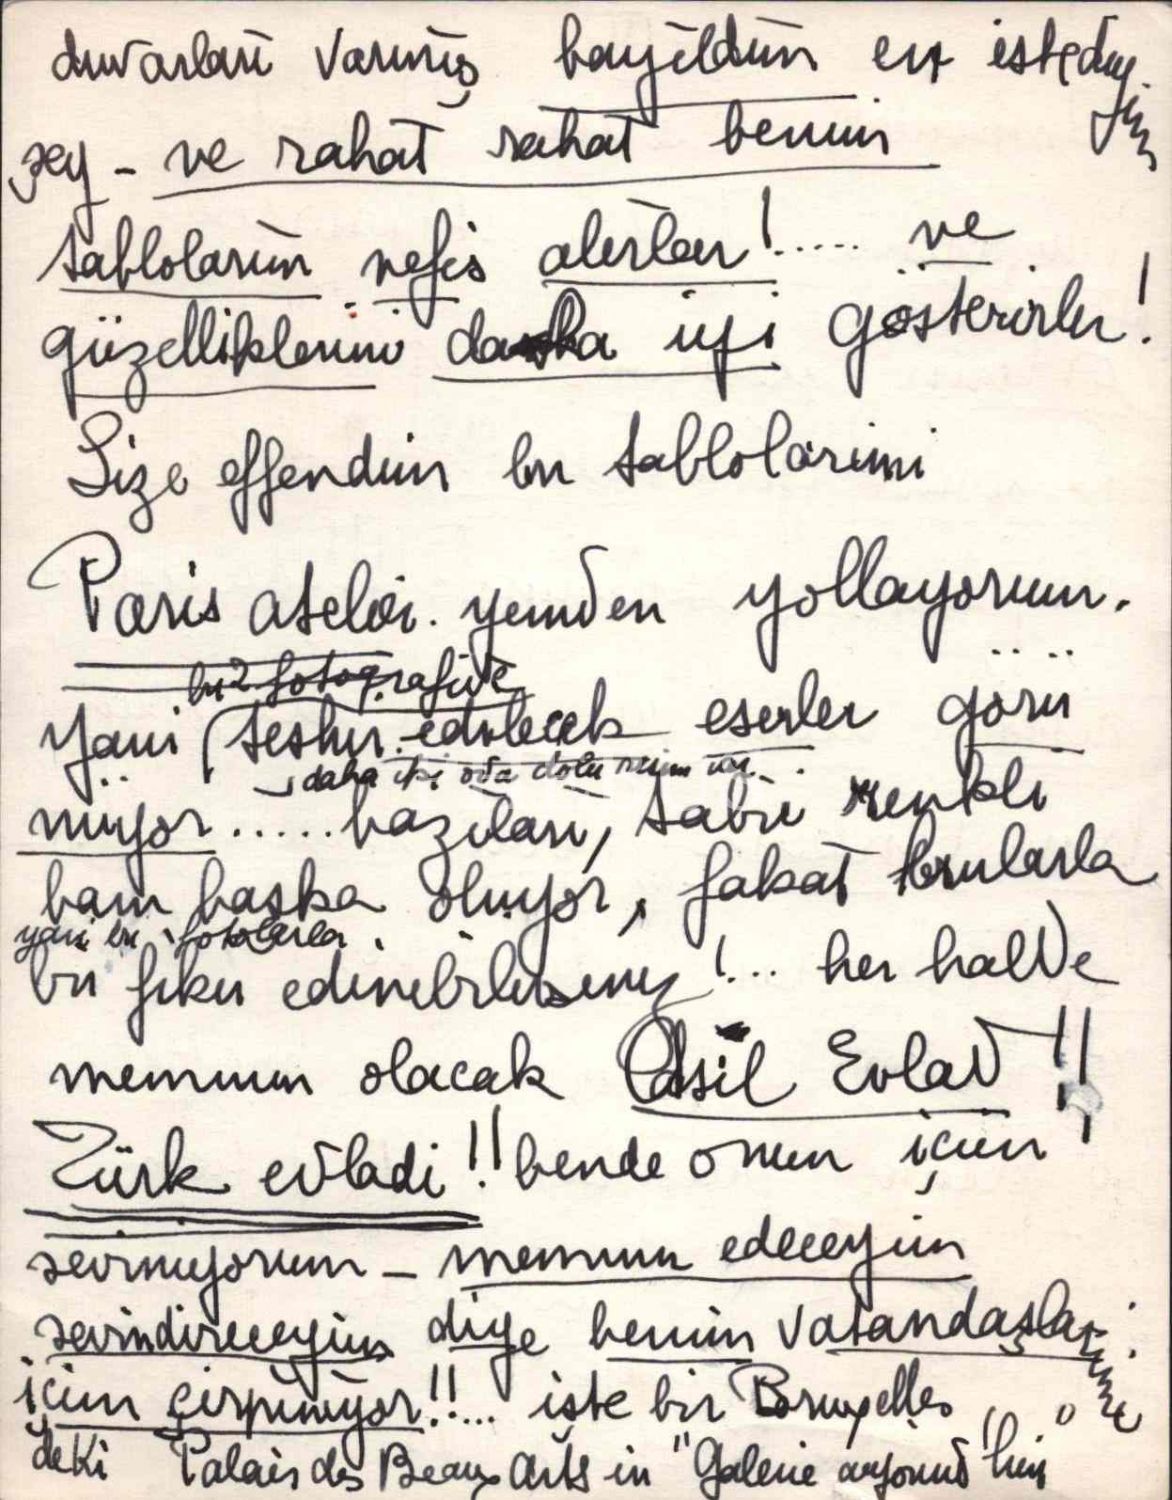 duvarları varmış bayıldım en istediğim
şey - ve rahat rahat benim
tablolarım nefis alırlar!..... ve
güzelliklerini daha iyi gösterirler!
Size effendim bu tablolarımi
Paris atelier. yemden yollayorum.
bu 2 fotografide
yani teshir edilecek eserler görü
daha iki oda dolu resim var.
müyor ..... bazıları, tabii renkli
bam baska oluyor, fakat bunlarla
yani bu fotolarla
bir fikir edinebilirsiniz!... her halde
memnun olacak Asil Evlad!!
Türk evladi!! bende onun için
sevinuyorum - memnun edeceyim
sevindireceyim diye benim vatandaşlarıme
için çirpiniyor!!... iste bir Bruxelles
deki Palais des Beaux Arts in "Galerie aujourd'hui"